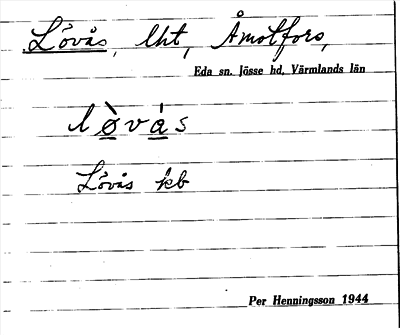 Lövås, lht, Åmotfors,
Eda sn. Jösse hd, Värmlands län
lø̀vás
Lövås kb
Per Henningsson 1944